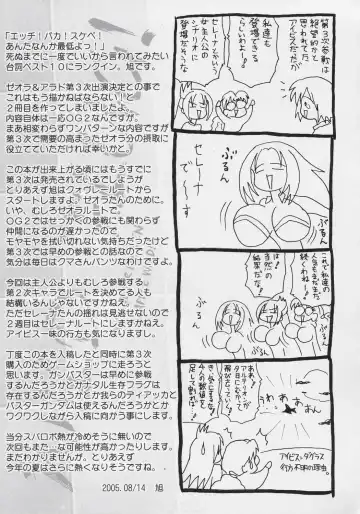 「エッチ！バカ！スケベ！
あんたなんか最低よっ！」
死ぬまでに一度でいいから言われてみたい
台詞ベスト１０にランクイン。旭です。
ゼオラ＆アラド第３次出演決定との事で
これはもう描かねばならない！と
２冊目を作ってしまいましたよ。
内容自体は一応ＯＧ２なんですが
まぁ相変わらずワンパターンな内容ですが
第３次で需要の高まったゼオラ分の摂取に
役立てていただければ幸いかと。
この本が出来上がる頃にはもうすでに
第３次は発売されているでしょうが
とりあえず旭はクォヴレールートから
スタートしますよ。ゼオラたんのために。
いや、むしろゼオラルートで。
ＯＧ２ではせっかくの参戦にも関わらず
仲間になるのが遅かったので
モヤモヤを拭い切れない気持ちだったけど
第３次では早めの参戦との話なので
気分は毎日はクマさんパンツなわけですよ。
今回は主人公よりもむしろ参戦する
第２次キャラでルートを決めてる人も
結構いるんじゃないですかねえ。
ただセレーナたんの揺れは見逃せないので
２週目はセレーナルートにしますかねえ。
アイビス一味の行方も気になりますし。
丁度この本を入稿したと同時に第３次
購入のためゲームショップに走ろうと
思います。ガンバスターは早めに参戦
するんだろうかとかナタル生存フラグは
存在するんだろうかとか我らのティアッカと
バスターガンダムは使えるんだろうかとか
ワクワクしながら入稿に向かう事にします。
当分スパロボ熱が冷めそうに無いので
次回もまた…な可能性が高かったりします。
まだわかりませんが。とりあえず
今年の夏はさらに熱くなりそうですね。
2005.08/14　旭
第３次参戦は
絶望的かと
思われてた
アイビスだが
私達も
登場できる
らしいわ！
セレーナとかいう
女主人公の
シナリオに
登場だそうな
セレーナで〜す
ぶるん
これで私達の
人気もまだまだ
続くわねー！
当然の
結果だな！
ぷるん
ぷるん
ぶるん
うわぁぁぁ
アイビス・ダグラス
行方不明の理由。